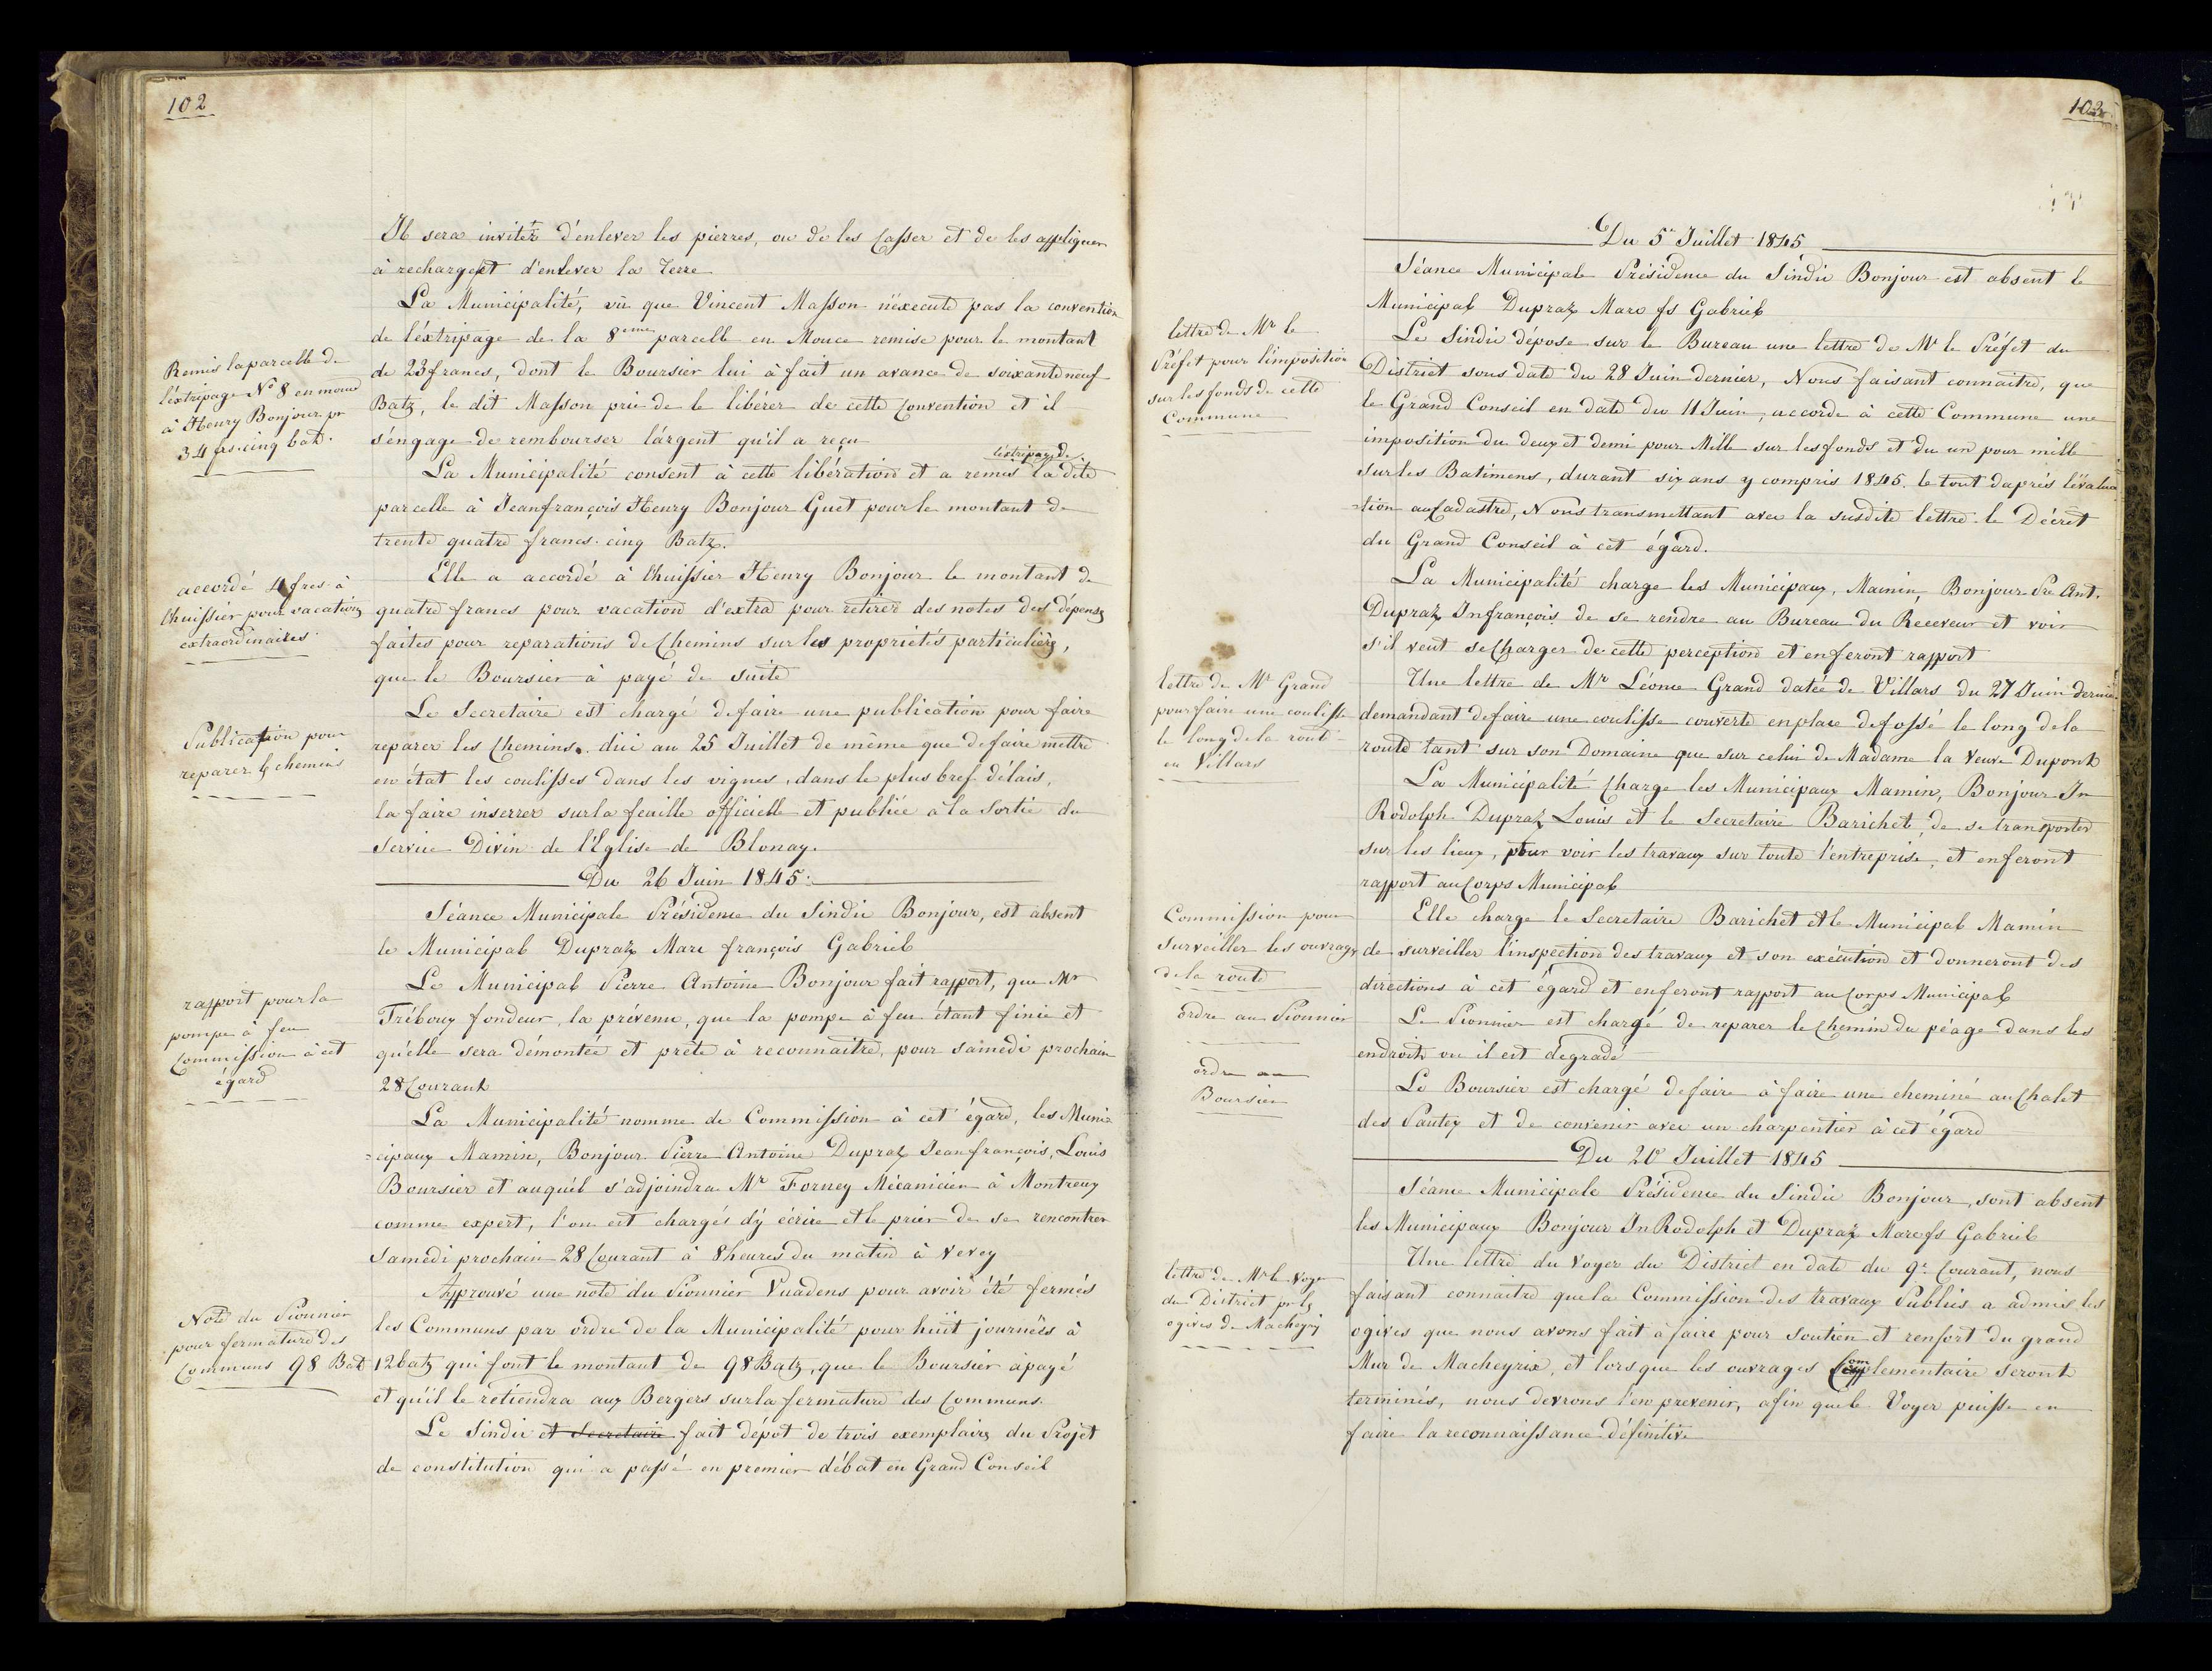 102
Il sera invitér d'enlever les pierres, ou de les Casser et de les appliquer
à recharge et d'enlever la Terre
La Municipalité, vû que Vincent Masson n'éxecute pas la convention
de l'éxtripage de la 8eme parcelle en Mouce remise pour le montant
de 23 francs, dont le Boursier lui à fait un avance de soixante neuf
Batz, le dit Masson prie de le libérer de cette Convention et il
s'engage de rembourser l'argent qu'il a reçu
Remis la parcelle de
l'éxtripage No 8 en mouce
à Henry Bonjour pr
34 frs. cinq bat.
La Municipalité consent à cette libération et a remis l'éxtripage de la dite
parcelle à Jeanfrançois Henry Bonjour Guet pour le montant de
trente quatre francs. cinq Batz.
accordé 4 fres à
l'huissier pour vacations
extraordinaires.
Elle a accordé à l'huissier Henry Bonjour le montant de
quatre francs pour vacation d'extra pour retirer des notes des dépenses
faites pour reparations de Chemins sur les propriétés particulières,
que le Boursier à payé de suite
Publication pour
reparer les chemins
Le Secretaire est chargé de faire une publication pour faire
reparer les Chemins. d'ici au 25 Juillet de même que de faire mettre
en état les coulisses dans les vignes, dans le plus bref délais,
la faire inserrer sur la feuille officielle et publiée à la Sortie du
Service Divin de l'Eglise de Blonay.
Du 26 Juin 1845.
Séance Municipale Présidence du Sindic Bonjour, est absent
le Municipal Dupraz Marc françois Gabriel
rapport pour la
pompe à feu
Commission à cet
égard
Le Municipal Pierre Antoine Bonjour fait rapport, que Mr
Tréboux fondeur, la prévenu, que la pompe à feu étant finie et
qu'elle sera démontée et prête à reconnaitre, pour samedi prochain
28 Courant
La Municipalité nomme de Commission à cet égard, les Muni-
=cipaux Mamin, Bonjour Pierre Antoine Dupraz Jeanfrançois, Louis
Boursier et auquel s'adjoindra Mr Forney Mécanicien à Montreux
comme expert, l'on est chargés d'y écrire et le prier de se rencontrer
Samedi prochain 28 Courant à 8 heures du matin à Vevey
Note du Pionnier
pour fermature des
Communs 98 Batz
Approuvé une note du Pionnier Vuadens pour avoir été fermés
les Communs par ordre de la Municipalité pour huit journées à
12 batz qui font le montant de 98 Batz, que le Boursier à payé
et qu'il le retiendra aux Bergers sur la fermature des Communs.
Le Sindic et Secretaire fait dépot de trois exemplaires du Projet
de constitution qui a passé en premier débat en Grand Conseil
103
Du 5e Juillet 1845
Séance Municipale Présidence du Sindic Bonjour est absent le
Municipal Dupraz Marc fs Gabriel
lettre de Mr le
Préfet pour l'imposition
sur les fonds de cette
Commune
Le Sindic dépose sur le Bureau une lettre de Mr le Préfet du
District sous date du 28 Juin dernier, Nous faisant connaitre, que
le Grand Conseil en date du 11 Juin, accorde à cette Commune une
imposition du deux et demi pour Mille sur les fonds et du un pour mille
sur les Batimens, durant six ans y compris 1845. le tout d'après l'évalua
=tion au Cadastre, Nous transmettant avec la susdite lettre le Décret
du Grand Conseil à cet égard.
La Municipalité charge les Municipaux, Mamin, Bonjour Pre Ant.
Dupraz Jnfrançois de se rendre au Bureau du Receveur et voir
s'il veut se Charger de cette perception et en feront rapport
lettre de Mr Grand
pour faire une coulisse
le long de la route
en Villars
Une lettre de Mr Léonce Grand datée de Villars du 27 Juin dernier
demandant de faire une coulisse couverte en place de fossé le long de la
route tant sur son Domaine que sur celui de Madame la Veuve Dupont
La Municipalité Charge les Municipaux Mamin, Bonjour Jn
Rodolph Dupraz Louis et le Secretaire Barichet, de se transporter
sur les lieux, pour voir les travaux sur toute l'entreprise, et en feront
rapport au Corps Municipal
Commission pour
Surveiller les ouvrages
de la route
Elle charge le Secretaire Barichet et le Municipal Mamin
de surveiller l'inspection des travaux et son exécution et donneront des
directions à cet égard et en feront rapport au Corps Municipal
ordre au Pionnier
Le Pionnier est chargé de reparer le Chemin du péage dans les
endroits ou il est degradé
ordre au
Boursier
Le Boursier est chargé de faire à faire une cheminé au Chalet
des Pautex et de convenir avec un charpentier à cet égard
Du 20e Juillet 1845
Séance Municipale Présidence du Sindic Bonjour, sont absent
les Municipaux Bonjour Jn Rodolph et Dupraz Marc fs Gabriel
lettre de Mr le Voyer
du District pr les
ogives de Macheyrix
Une lettre du Voyer du District en date du 9e Courant, nous
faisant connaitre que la Commission des travaux Publics a admis les
ogives que nous avons fait à faire pour Soutien et renfort du grand
Mur de Macheyrix, et lorsque les ouvrages Complementaire seront
terminés, nous devrons l'en prevenir, afin que le Voyer puisse en
faire la reconnaissance définitive